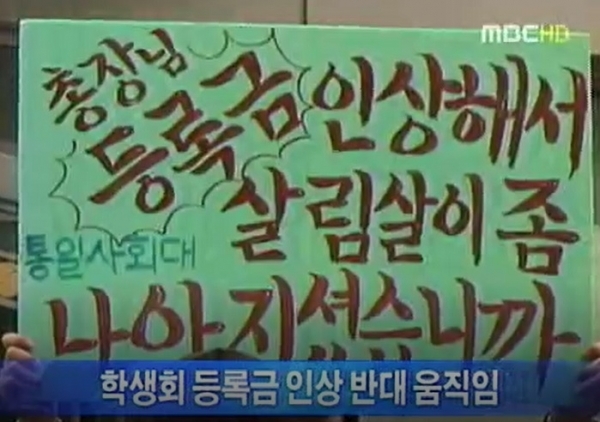 MBCHD
총장님
등록금 인상해서
살림살이 좀
통일사회대
나아지셨습니까
학생회 등록금 인상 반대 움직임